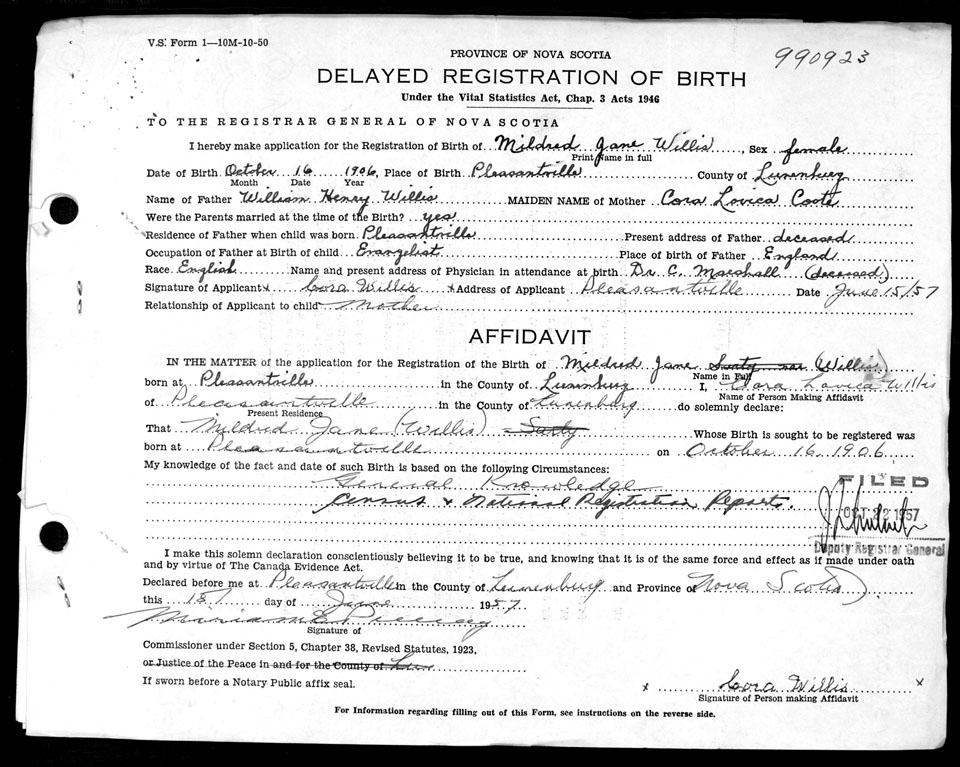 V.S. Form 1—10M-10-50
990923
PROVINCE OF NOVA SCOTIA
DELAYED REGISTRATION OF BIRTH
Under the Vital Statistics Act, Chap. 3 Acts 1946
TO THE REGISTRAR GENERAL OF NOVA SCOTIA
I hereby make application for the Registration of Birth of Mildred Jane Willis, Sex female
Print Name in full
Date of Birth October 16 1906, Place of Birth Pleasantville County of Lunenburg
Month Date Year
Name of Father William Henry Willis MAIDEN NAME of Mother Cora Lovica Coots
Were the Parents married at the time of the Birth? yes
Residence of Father when child was born Pleasantville Present address of Father deceased
Occupation of Father at Birth of child Evangelist Place of birth of Father England
Race English Name and present address of Physician in attendance at birth Dr. C. Marshall (deceased)
Signature of Applicant x Cora Willis x Address of Applicant Pleasantville Date June 15/57
Relationship of Applicant to child Mother
AFFIDAVIT
IN THE MATTER of the application for the Registration of the Birth of Mildred Jane (Willis)
Name in Full
born at Pleasantville in the County of Lunenburg I, Cora Lovica Willis
Name of Person Making Affidavit
of Pleasantville in the County of Lunenburg do solemnly declare:
Present Residence
That Mildred Jane (Willis) Whose Birth is sought to be registered was
born at Pleasantville on October 16 1906
My knowledge of the fact and date of such Birth is based on the following Circumstances:
General Knowledge
Census & National Registration Reports.
FILED
OCT 22 1957
Deputy Registrar General
I make this solemn declaration conscientiously believing it to be true, and knowing that it is of the same force and effect as if made under oath
and by virtue of The Canada Evidence Act.
Declared before me at Pleasantville in the County of Lunenburg and Province of Nova Scotia
this 15 day of June 1957
Signature of
Commissioner under Section 5, Chapter 38, Revised Statutes, 1923,
or Justice of the Peace in and for the County of
If sworn before a Notary Public affix seal.
x Cora Willis x
Signature of Person making Affidavit
For Information regarding filling out of this Form, see instructions on the reverse side.